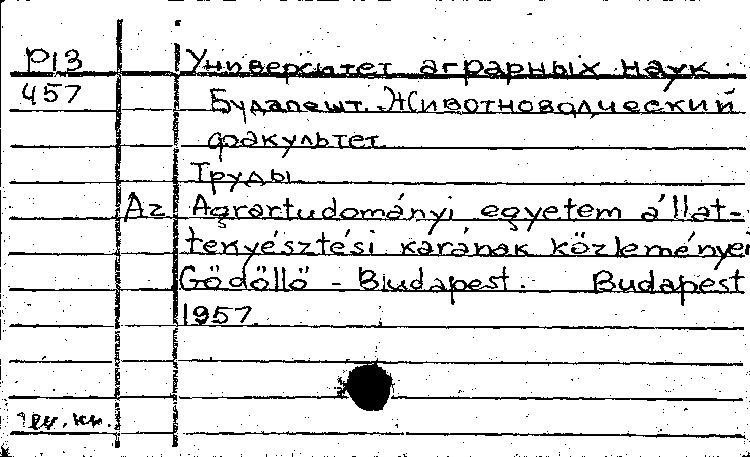 P13 Университет аграрных наук.
457 Будапешт. Животноводческий
факультет.
Труды
Az Agrartudományi egyetem állat-
tenyésztési karának közleményei
Gödöllő - Budapest. Budapest
1957